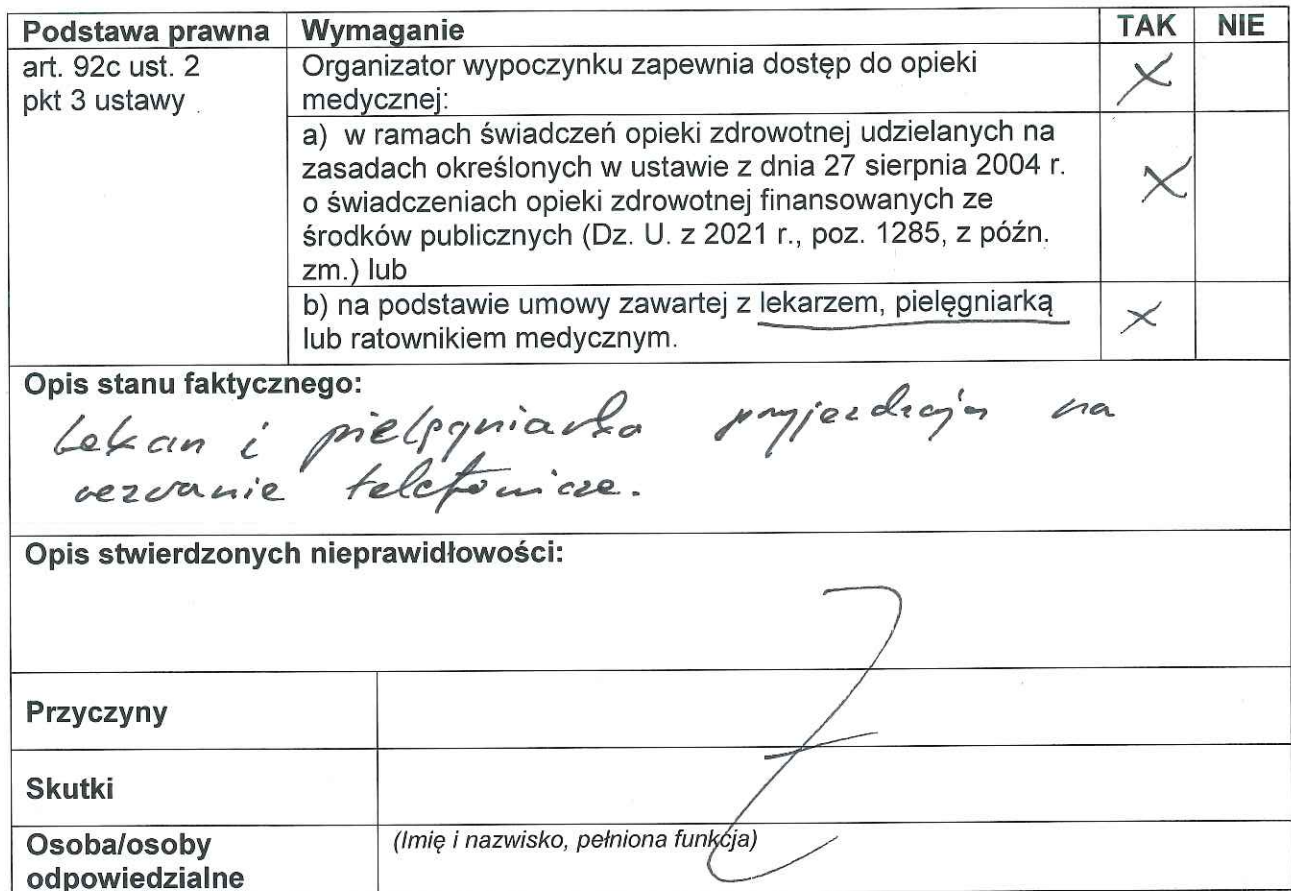 Podstawa prawna Wymaganie TAK NIE
art. 92c ust. 2 Organizator wypoczynku zapewnia dostęp do opieki
pkt 3 ustawy medycznej: X
a) w ramach świadczeń opieki zdrowotnej udzielanych na
zasadach określonych w ustawie z dnia 27 sierpnia 2004 r. X
o świadczeniach opieki zdrowotnej finansowanych ze
środków publicznych (Dz. U. z 2021 r., poz. 1285, z późn.
zm.) lub
b) na podstawie umowy zawartej z lekarzem, pielęgniarką X
lub ratownikiem medycznym.
Opis stanu faktycznego:
Lekarz i pielęgniarka przyjeżdżają na
wezwanie telefoniczne.
Opis stwierdzonych nieprawidłowości:
Przyczyny
Skutki
Osoba/osoby (Imię i nazwisko, pełniona funkcja)
odpowiedzialne